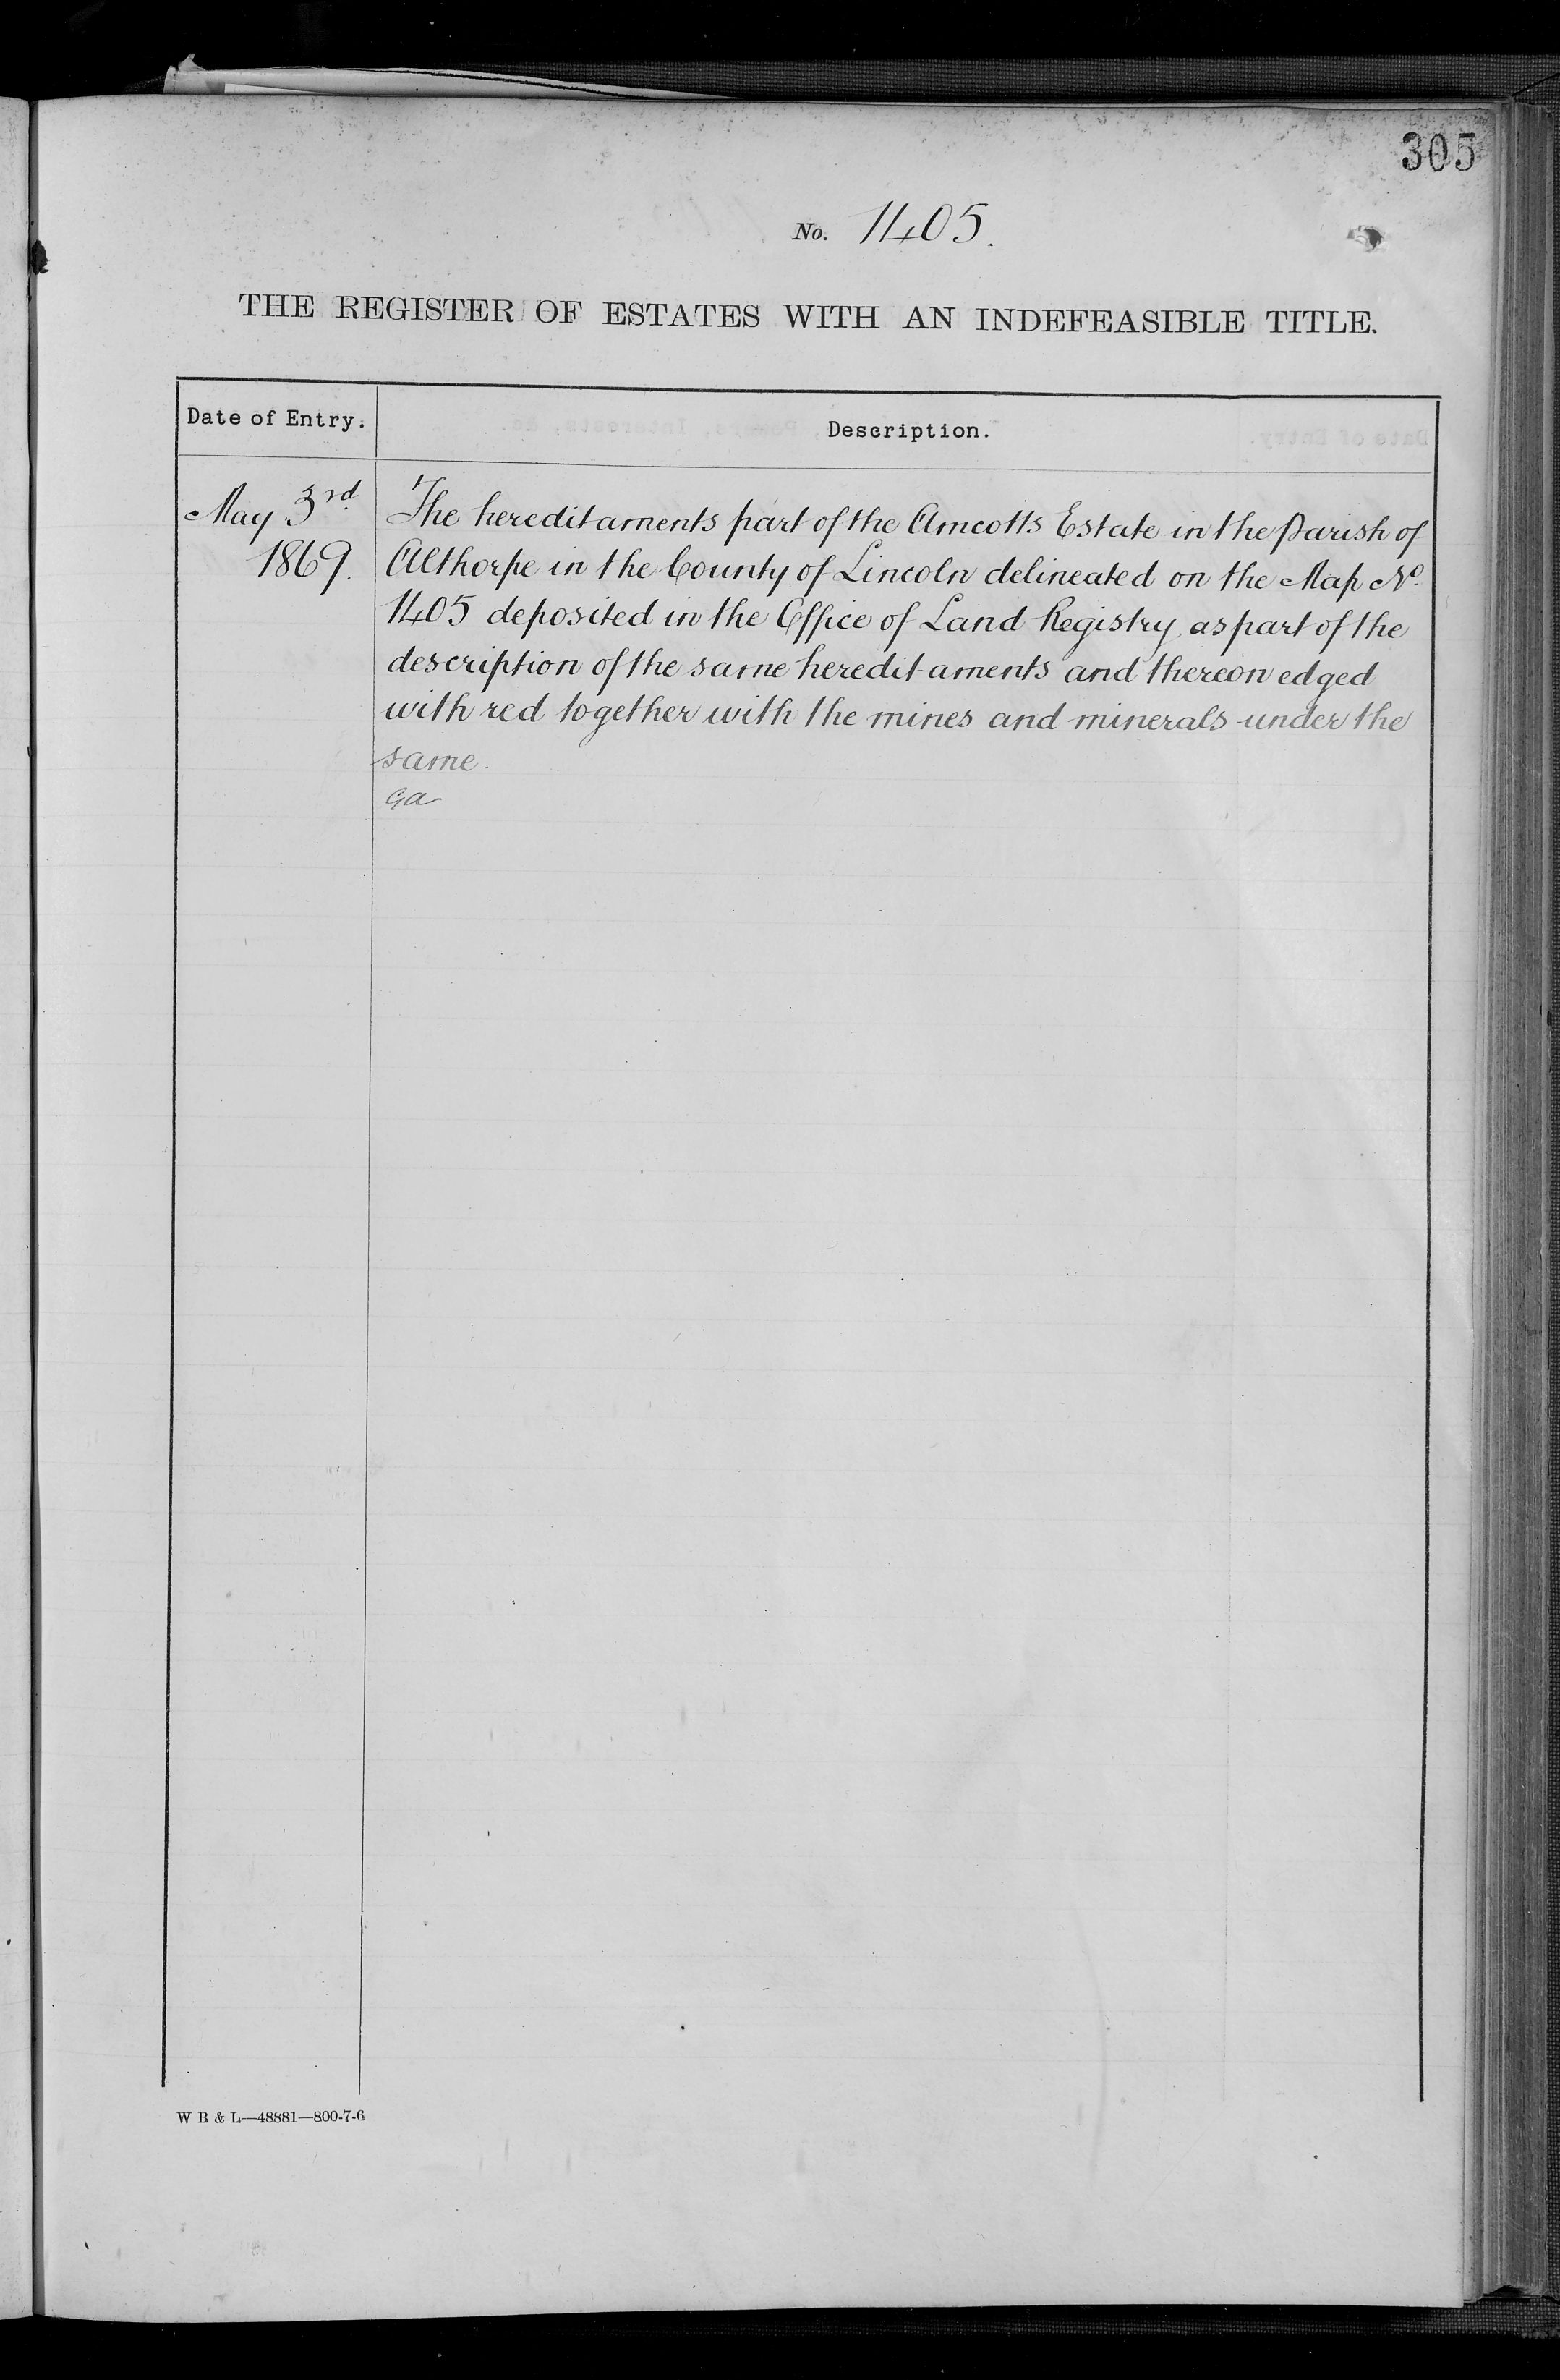 305
No. 1405.
THE REGISTER OF ESTATES WITH AN INDEFEASIBLE TITLE.
Date of Entry.
Description.
May 3rd.
1869.
The hereditaments part of the Amcotts Estate in the Parish of
Althorpe in the County of Lincoln delineated on the Map No.
1405 deposited in the Office of Land Registry as part of the
description of the same hereditaments and thereon edged
with red together with the mines and minerals under the
same.
Ga
W B & L—48881—800-7-6